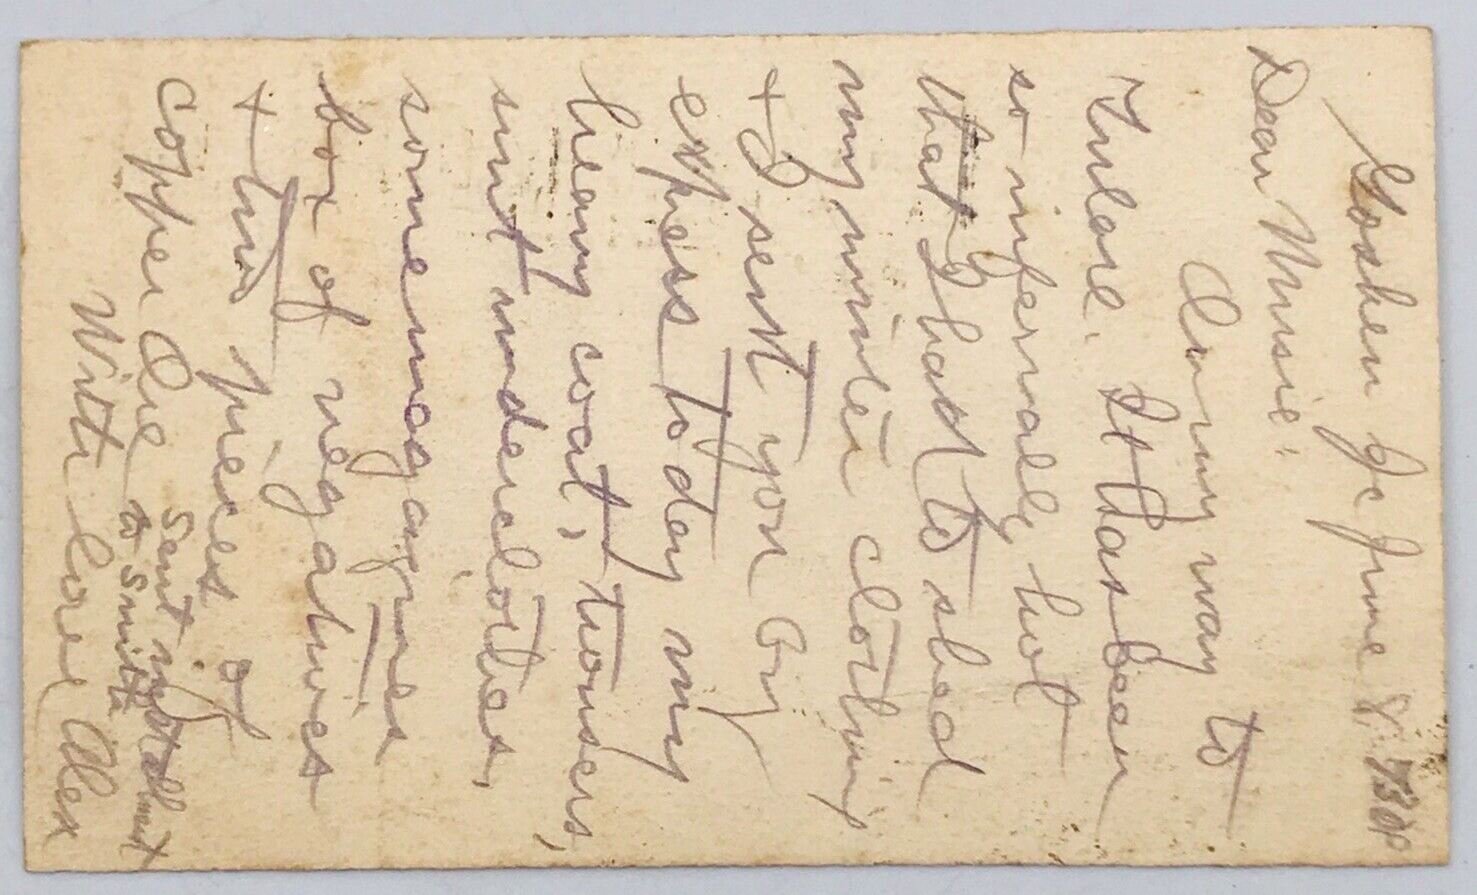 Goshen Jc June 8. 7 30 P
Dear Musie:
On my way to
Tulare. It has been
so infernally hot
that I had to shed
my winter clothing
+ I sent you by
express to day my
heavy coat, trousers,
suit underclothes,
some magazines
box of negatives
+ two pieces of
copper Ore
Sent
to Smith
With love Alex